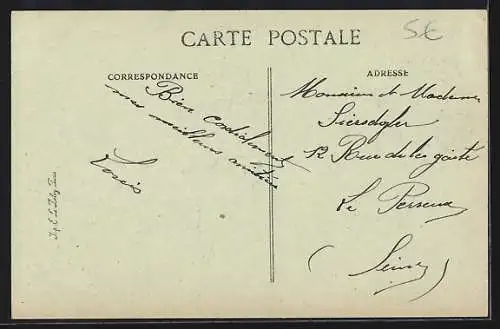 CARTE POSTALE
5€
CORRESPONDANCE
Bien cordialement
mes meilleurs amitiés
Louis
ADRESSE
Monsieur et Madame
12 Rue de la gaité
Le Perreux
(Seine)